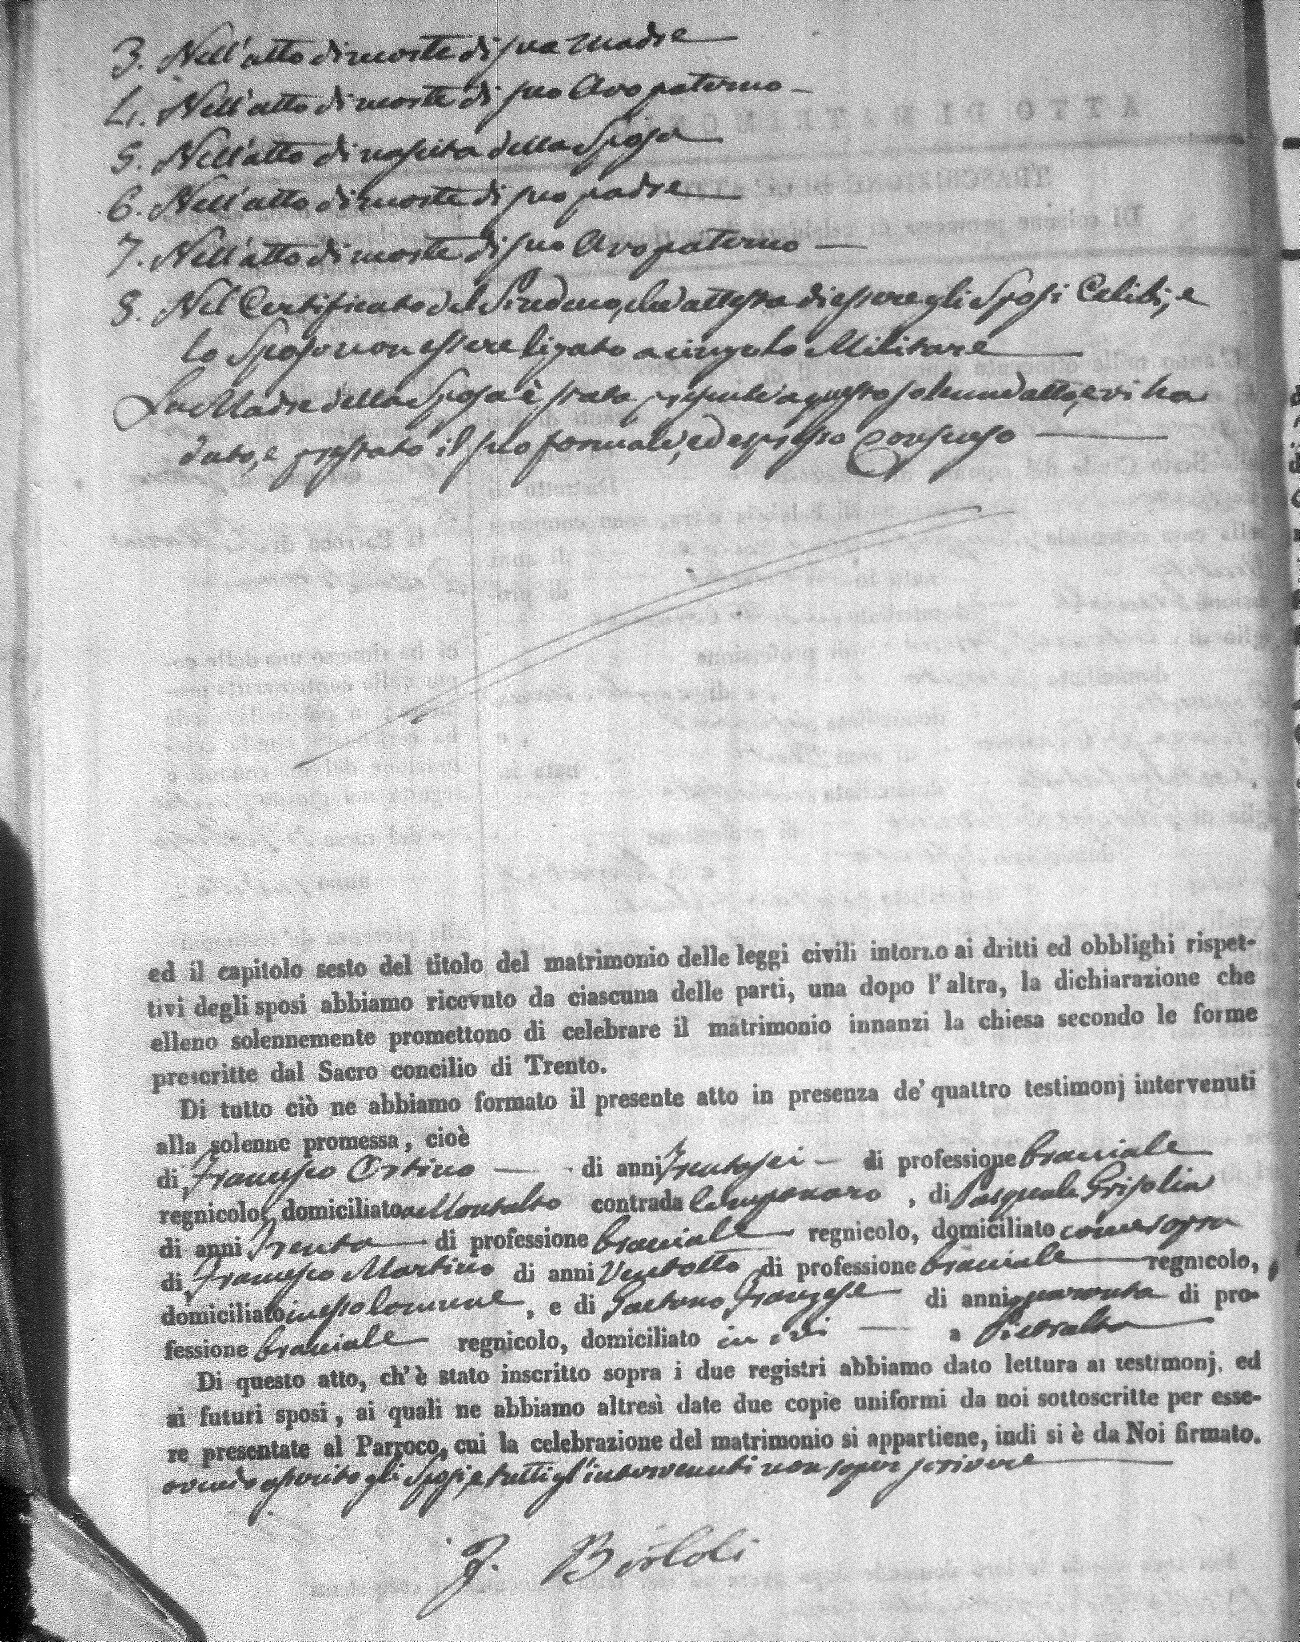 3. Nell'atto di morte di sua Madre
4. Nell'atto di morte di suo Avo paterno
5. Nell'atto di nascita della Sposa
6. Nell'atto di morte di suo padre
7. Nell'atto di morte di suo Avo paterno
8. Nel Certificato del Sindaco, che attesta di essere gli Sposi Celibi, e
lo Sposo non essere ligato a cingolo Militare
La Madre della Sposa è stata presente a questo solenne atto, e vi ha
dato, e prestato il suo formale, ed espresso Consenso
ed il capitolo sesto del titolo del matrimonio delle leggi civili intorno ai dritti ed obblighi rispet-
tivi degli sposi abbiamo ricevuto da ciascuna delle parti, una dopo l'altra, la dichiarazione che
elleno solennemente promettono di celebrare il matrimonio innanzi la chiesa secondo le forme
prescritte dal Sacro concilio di Trento.
Di tutto ciò ne abbiamo formato il presente atto in presenza de' quattro testimonj intervenuti
alla solenne promessa, cioè
di Francesco Ortino di anni Trentasei di professione bracciale
regnicolo, domiciliato a Montalto contrada , di Pasquale Grisolia
di anni Trenta di professione bracciale regnicolo, domiciliato come sopra
di Francesco Martino di anni Ventotto di professione bracciale regnicolo,
domiciliato in esso Comune , e di Gaetano Franzese di anni quaranta di pro-
fessione bracciale regnicolo, domiciliato in ivi a Pietralta
Di questo atto, ch'è stato inscritto sopra i due registri abbiamo dato lettura ai testimonj, ed
ai futuri sposi, ai quali ne abbiamo altresì date due copie uniformi da noi sottoscritte per esse-
re presentate al Parroco, cui la celebrazione del matrimonio si appartiene, indi si è da Noi firmato.
avendo asserito gli Sposi, e tutti gl'intervenuti non saper scrivere